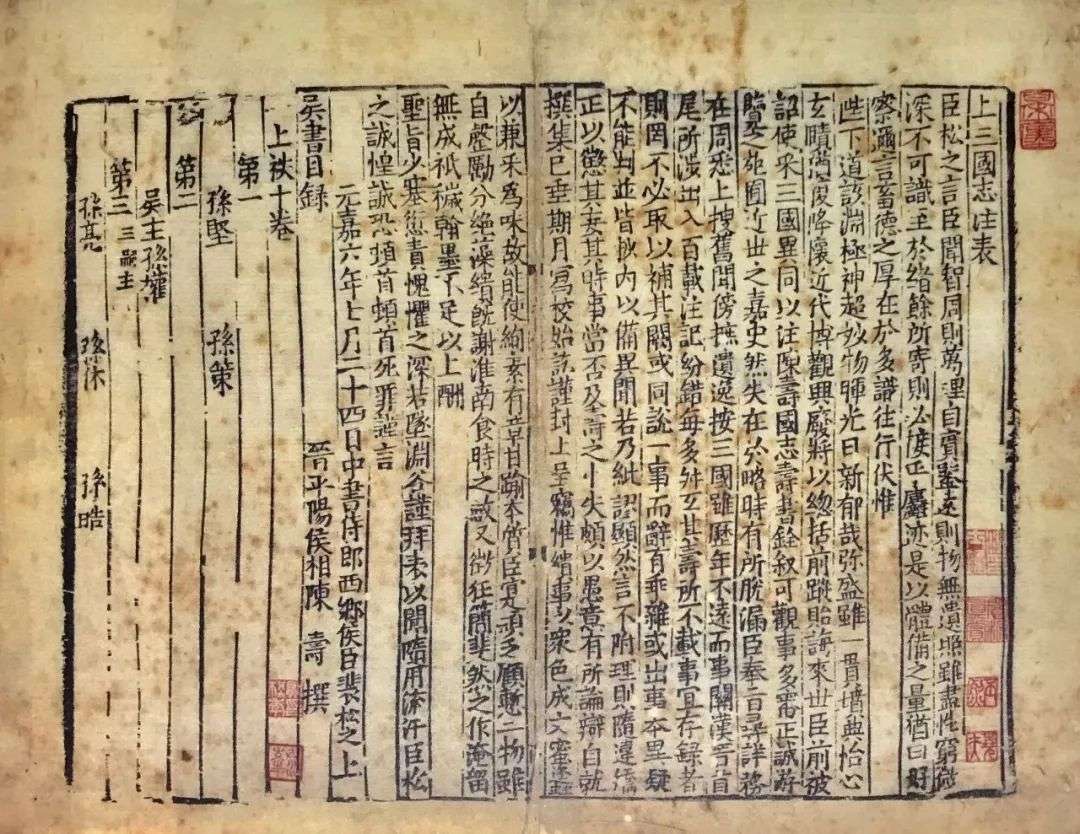 上三國志注表
臣松之言臣聞智周則萬理自賓鑒遠則物無遺照雖盡性窮微
深不可識至於緒餘所寄則必接乎麤迹是以體備之量猶曰好
察邇言畜德之厚在於多識往行伏惟
陛下道該淵極神超妙物暉光日新郁哉弥盛雖一貫墳典怡心
玄賾猶復降懷近代博觀興廢將以總括前蹤貽誨來世臣前被
詔使采三國異同以注陳壽國志壽書銓叙可觀事多審正誠游
覽之苑囿近世之嘉史然失在於略時有所脫漏臣奉旨尋詳務
在周悉上搜舊聞傍摭遺逸按三國雖歷年不遠而事關漢晉首
尾所涉出入百載注記紛錯每多舛互其壽所不載事宜存録者
則罔不必取以補其闕或同說一事而辭有乖雜或出事本異疑
不能判並皆抄内以備異聞若乃紕謬顯然言不附理則隨違矯
正以懲其妄其時事當否及壽之小失頗以愚意有所論辯自就
撰集已垂期月寫校始訖謹封上呈竊惟繢事以衆色成文蜜蠭
以兼采爲味故能使絢素有章甘踰本質臣寔頑乏顧慙二物雖
自罄勵分絶藻繢既謝淮南食時之敏又微狂簡斐然之作淹留
無成祇穢翰墨不足以上酬
聖旨少塞愆責愧懼之深若墜淵谷謹拜表以聞隨用流汗臣松
之誠惶誠恐頓首頓首死罪謹言
元嘉六年七月二十四日中書侍郎西鄉侯臣裴松之上
吳書目録 晉平陽侯相陳 壽 撰
上袟十卷
第一
孫堅 孫策
第二
吳主孫權
第三 三嗣主
孫亮 孫休 孫晧